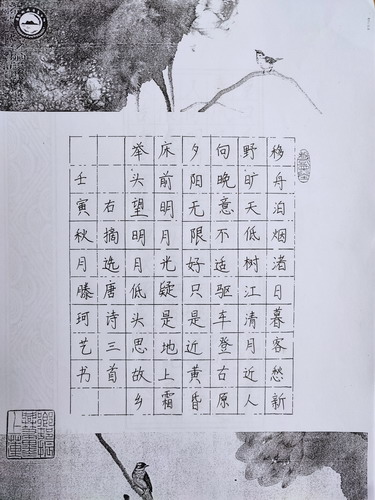 移舟泊烟渚日暮客愁新
野旷天低树江清月近人
向晚意不适驱车登古原
夕阳无限好只是近黄昏
床前明月光疑是地上霜
举头望明月低头思故乡
右摘选唐诗三首
壬寅秋月滕珂艺书